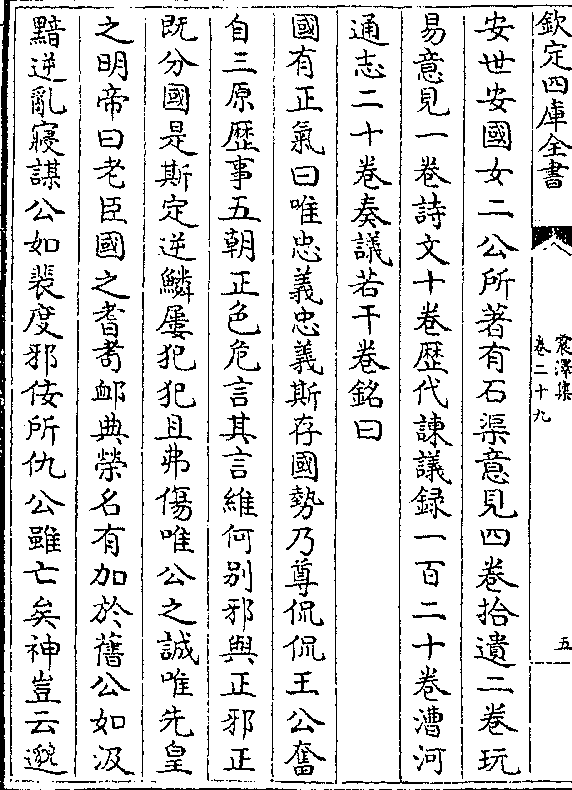 欽定四庫全書
震澤集
卷二十九
五
安世安國女二公所著有石渠意見四卷拾遺二卷玩
易意見一卷詩文十卷歴代諫議録一百二十卷漕河
通志二十卷奏議若干卷銘曰
國有正氣曰唯忠義忠義斯存國勢乃尊侃侃王公奮
自三原歴事五朝正色危言其言維何别邪與正邪正
既分國是斯定逆鱗屢犯犯且弗傷唯公之誠唯先皇
之明帝曰老臣國之耆耇䘏典榮名有加於舊公如汲
黯逆亂寢謀公如裴度邪佞所仇公雖亡矣神豈云邈